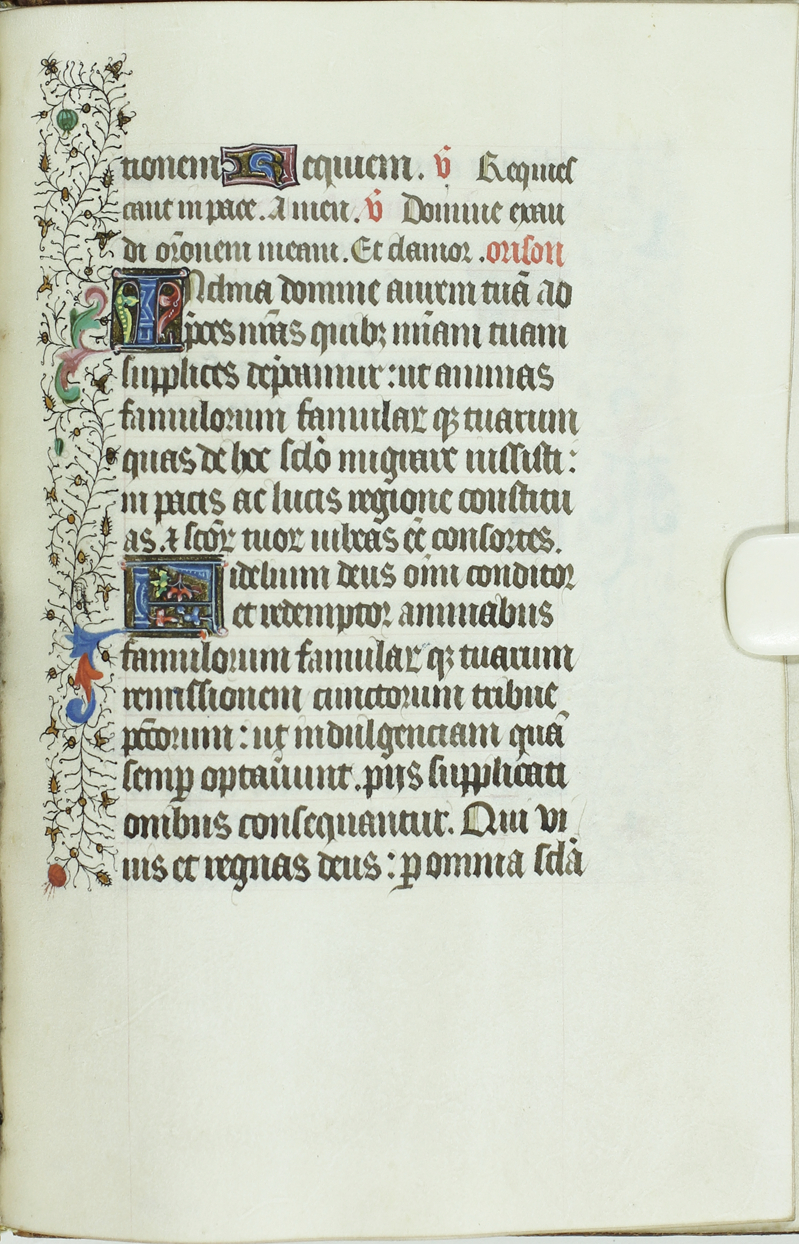 tionem Requiem. v̄ Requies
cant in pace. Amen. v̄ Domine exau
di or̄onem meam. Et clamor. orison
Inclina domine aurem tuā ad
p̄ces nr̄as quibꝫ mīam tuam
supplices dep̄camur: ut animas
famulorum famularꝝ qꝫ tuarum
quas de hoc sc̄lo migrare iussisti:
in pacis ac lucis regione constitu
as. ⁊ sc̄oꝝ tuoꝝ iubeas eē consortes.
Fidelium deus om̄i conditor
et redemptor animabus
famulorum famulaꝝ qꝫ tuarum
remissionem cunctorum tribue
pc̄corum: ut indulgenciam quā
semꝑ optauūnt. pijs supplicati
onibus consequantur. Qui vi
uis et regnas deus: ꝑ omnia sc̄la